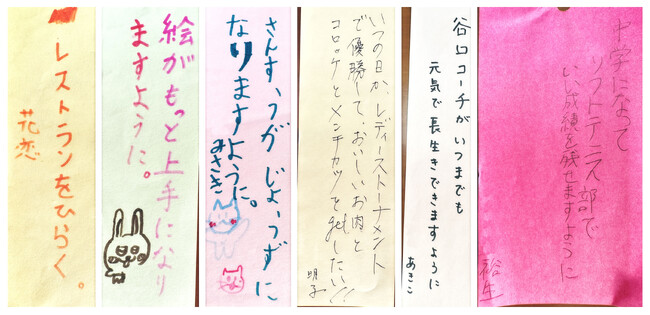 レストランをひらく。
花恋
絵がもっと上手になり
ますように。
さんすうがじょうずに
なりますように。
みさき
いつの日か、レディーストーナメント
で優勝して、おいしいお肉と
コロッケとメンチカツをgetしたい!!
明子
谷口コーチがいつまでも
元気で長生きできますように
あきこ
中学になって
ソフトテニス部で
いい成績を残せますように
裕生